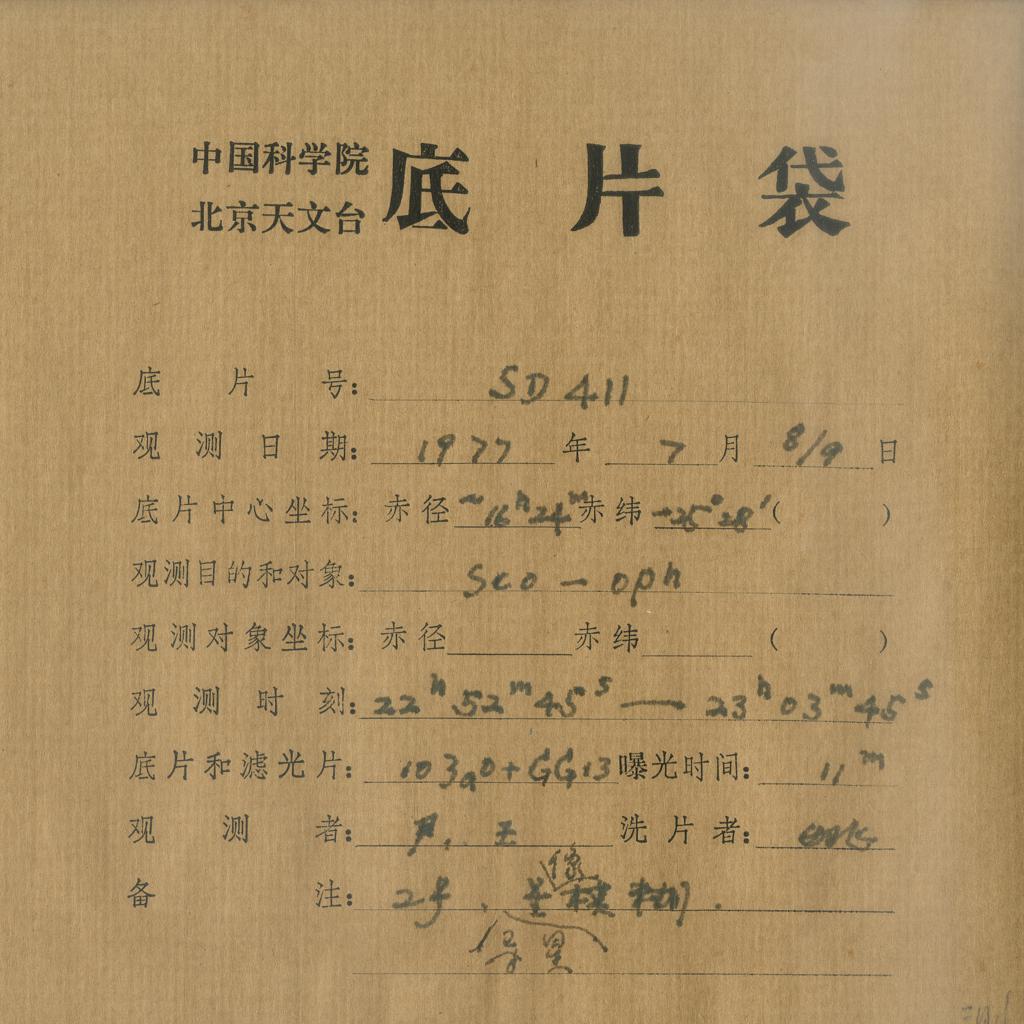 中国科学院
北京天文台
底片袋
底片号: SD 411
观测日期: 1977 年 7 月 8/9 日
底片中心坐标: 赤径 ~16h24m 赤纬 -25°28′ ( )
观测目的和对象: Sco — oph
观测对象坐标: 赤径 赤纬 ( )
观测时刻: 22h 52m 45s — 23h 03m 45s
底片和滤光片: 103aO+GG13 曝光时间: 11m
观测者: 尹、王 洗片者:
备注: 2号、星像模糊.
导星